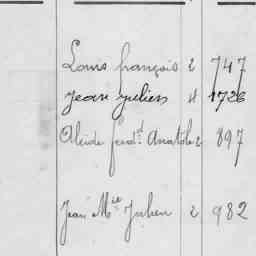 Louis françois 2 747
Jean julien 4 1726
Alcide ferd.d Anatole 2 897
Jean M.ie Julien 2 982